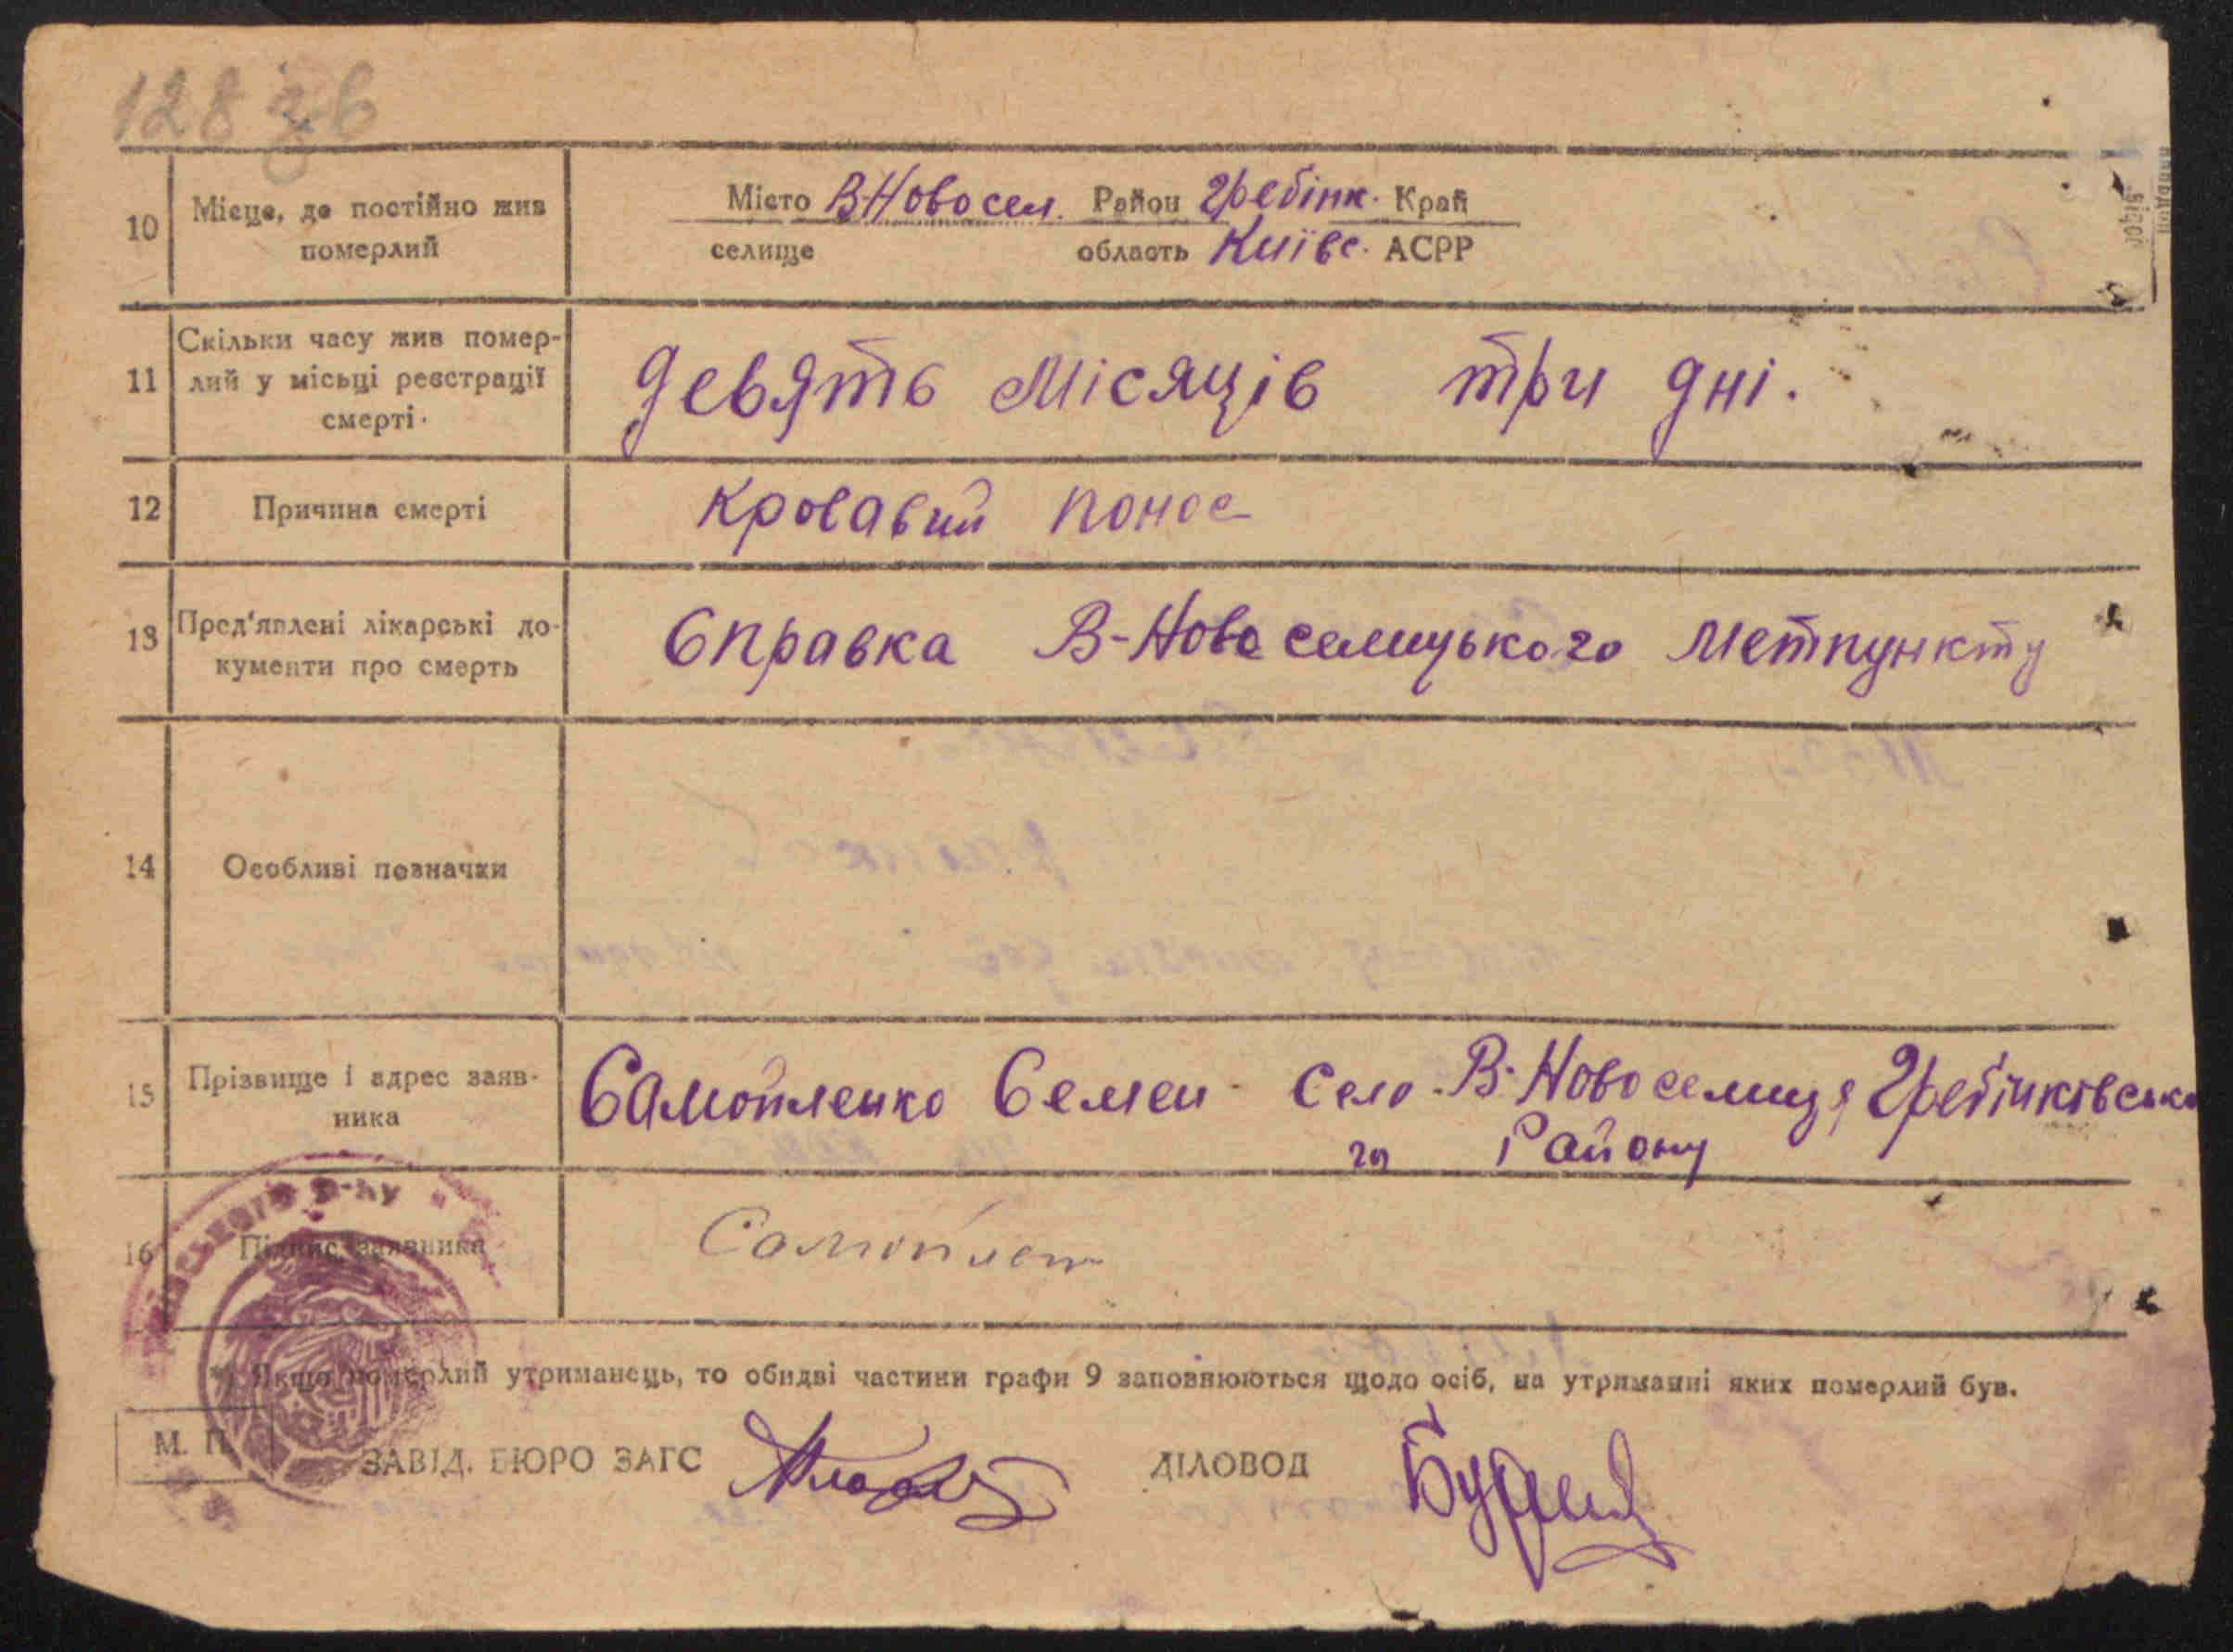 128 зв
10 Місце, де постійно жив
померлий
Місто В-Новосел. Район Гребінк. Край
селище область Київс. АСРР
11 Скільки часу жив помер-
лий у місьці реєстрації
смерті.
девять місяців три дні.
12 Причина смерті кровавий понос
13 Пред'явлені лікарські до-
кументи про смерть
Справка В-Новоселицького метпункту
14 Особливі позначки
15 Прізвище і адрес заяв-
ника
Самойленко Семен - село В-Новоселиця Гребінківсько
го Району
16 Підпис заявника Самойлен
*) Якщо померлий утриманець, то обидві частини графи 9 заповнюються щодо осіб, на утриманні яких померлий був.
М. П. ЗАВІД. БЮРО ЗАГС ДІЛОВОД